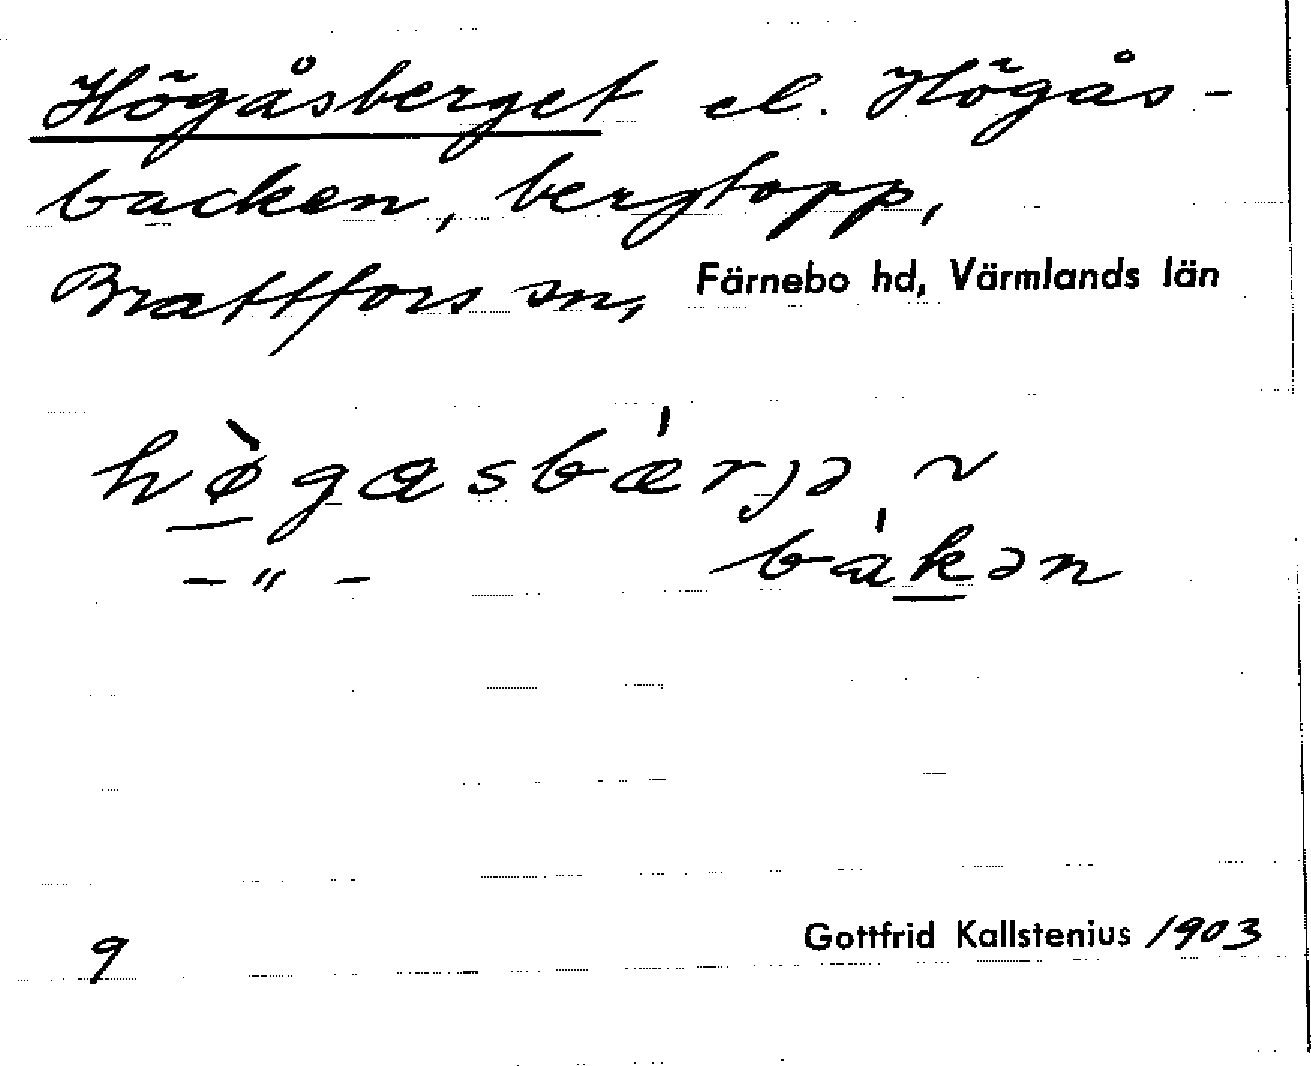 Högåsberget el. Högås-
backen, bergtopp,
Brattfors sn, Färnebo hd, Värmlands län
hø̀gasbǽrjə ~
–〃– bákən
9 Gottfrid Kallstenius 1903